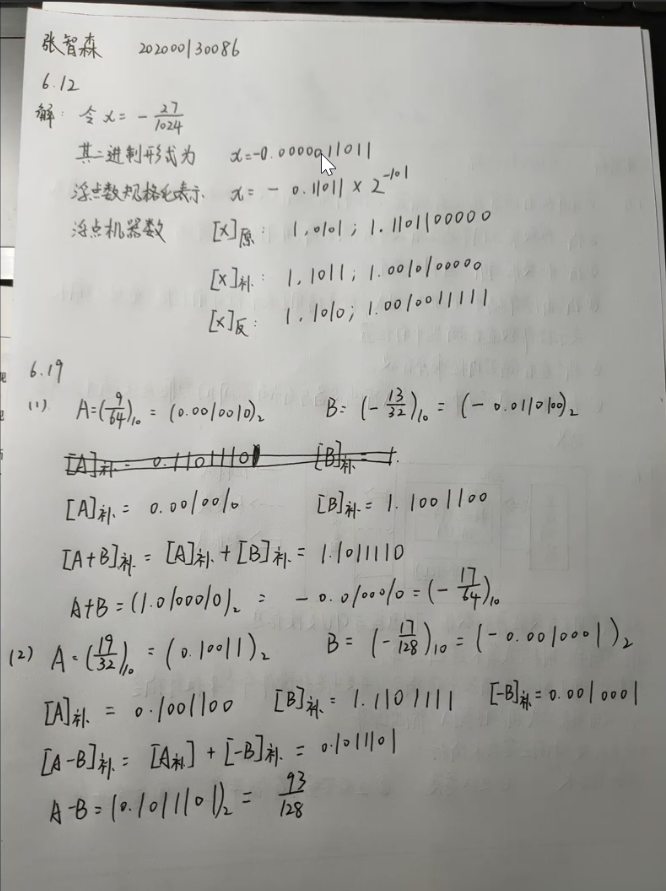 张智森 202000130086
6.12
解: 令 x = - 27/1024
其二进制形式为 x=-0.0000011011
浮点数规格化表示 x = - 0.11011 × 2^-101
浮点机器数 [x]原: 1,0101; 1.1101100000
[x]补: 1,1011; 1.0010100000
[x]反: 1,1010; 1.0010011111
6.19
(1) A=(9/64)10 = (0.0010010)2 B= (-13/32)10 = (-0.0110100)2
[A]补 = 0.0010010 [B]补 = 1.1001100
[A+B]补 = [A]补 + [B]补 = 1.1011110
A+B = (1.0100010)2 = -0.0100010 = (-17/64)10
(2) A = (19/32)10 = (0.10011)2 B = (-17/128)10 = (-0.0010001)2
[A]补 = 0.1001100 [B]补 = 1.1101111 [-B]补 = 0.0010001
[A-B]补 = [A补] + [-B]补 = 0.1011101
A-B = (0.1011101)2 = 93/128